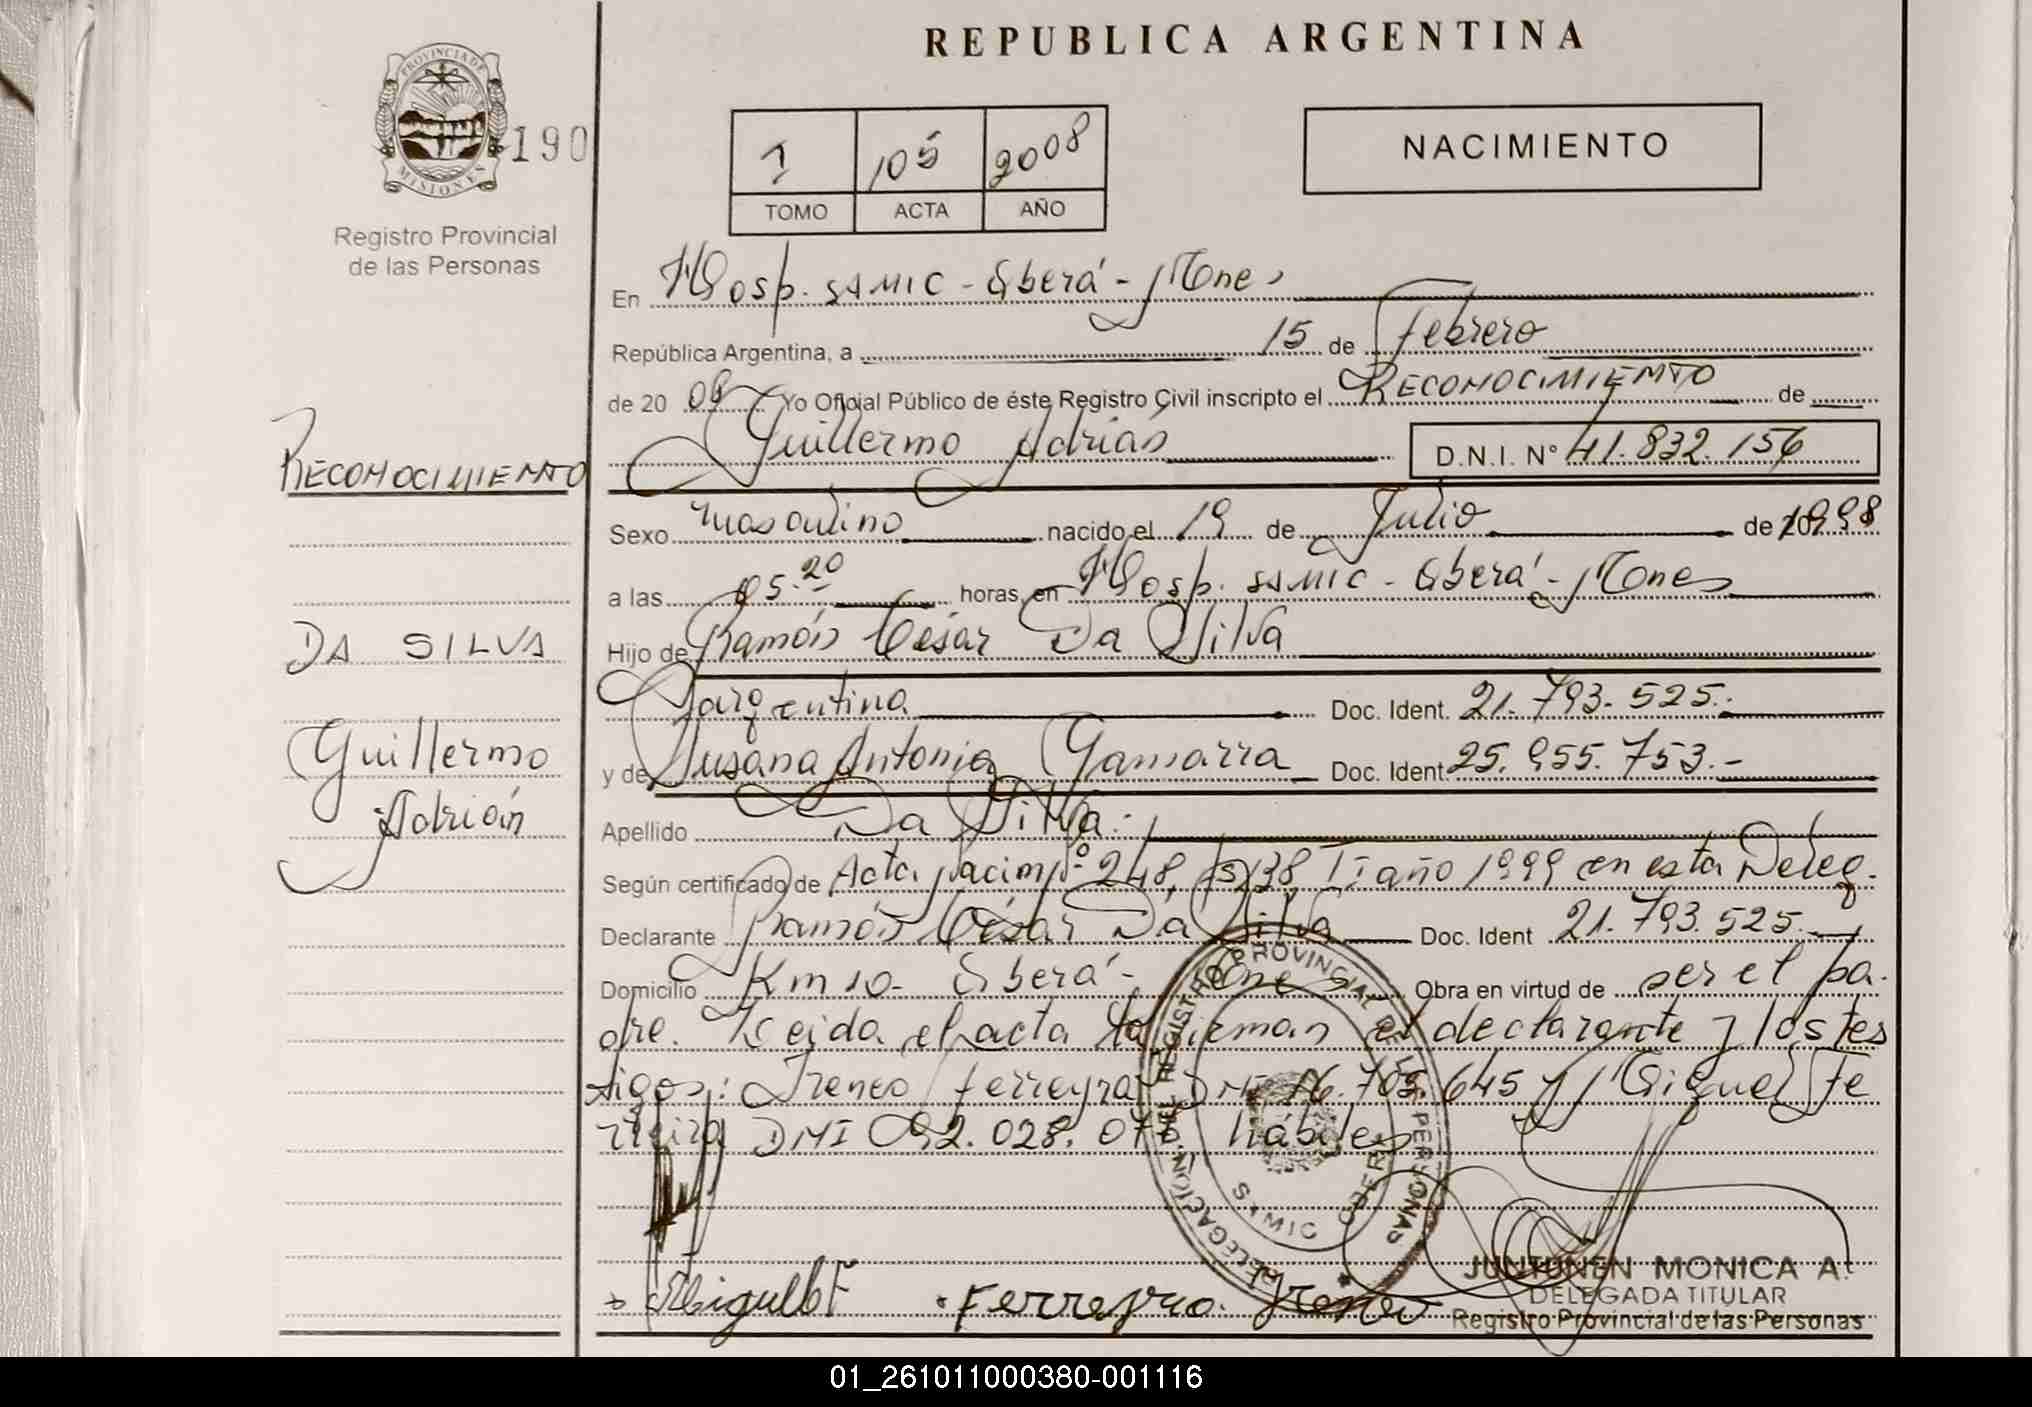 REPUBLICA ARGENTINA
PROVINCIA DE MISIONES
190
Registro Provincial
de las Personas
I 105 2008
TOMO ACTA AÑO
NACIMIENTO
En Hosp. SAMIC - Oberá - Mones
República Argentina, a 15 de Febrero
de 20 08 Yo Oficial Público de éste Registro Civil inscripto el RECONOCIMIENTO de
Guillermo Adrián D.N.I. Nº 41.832.156
RECONOCIMIENTO
Sexo masculino nacido el 19 de Julio de 1998
a las 05.20 horas, en Hosp. SAMIC - Oberá - Mones
Hijo de Ramón César Da Silva
DA SILVA
argentina Doc. Ident. 21.793.525.-
y de Susana Antonia Gamarra Doc. Ident. 25.955.753.-
Guillermo
Adrián
Apellido Da Silva.-
Según certificado de Acta nacim. Nº 248, Fº 138, T I año 1999 en esta Deleg.
Declarante Ramón César Da Silva Doc. Ident 21.793.525.-
Domicilio Km 10 - Oberá - Mones Obra en virtud de ser el pa-
dre. Leida el acta la firman el declarante y los tes
tigos: Ireneo Ferreyra DNI 16.705.645 y Miguel Fe
rreira DNI 92.028.076. hábiles
DELEGACION DEL REGISTRO PROVINCIAL DE LAS PERSONAS
SAMIC OBERA
Ferreyra Ireneo
JUNTUNEN MONICA A.
DELEGADA TITULAR
Registro Provincial de las Personas
01_261011000380-001116